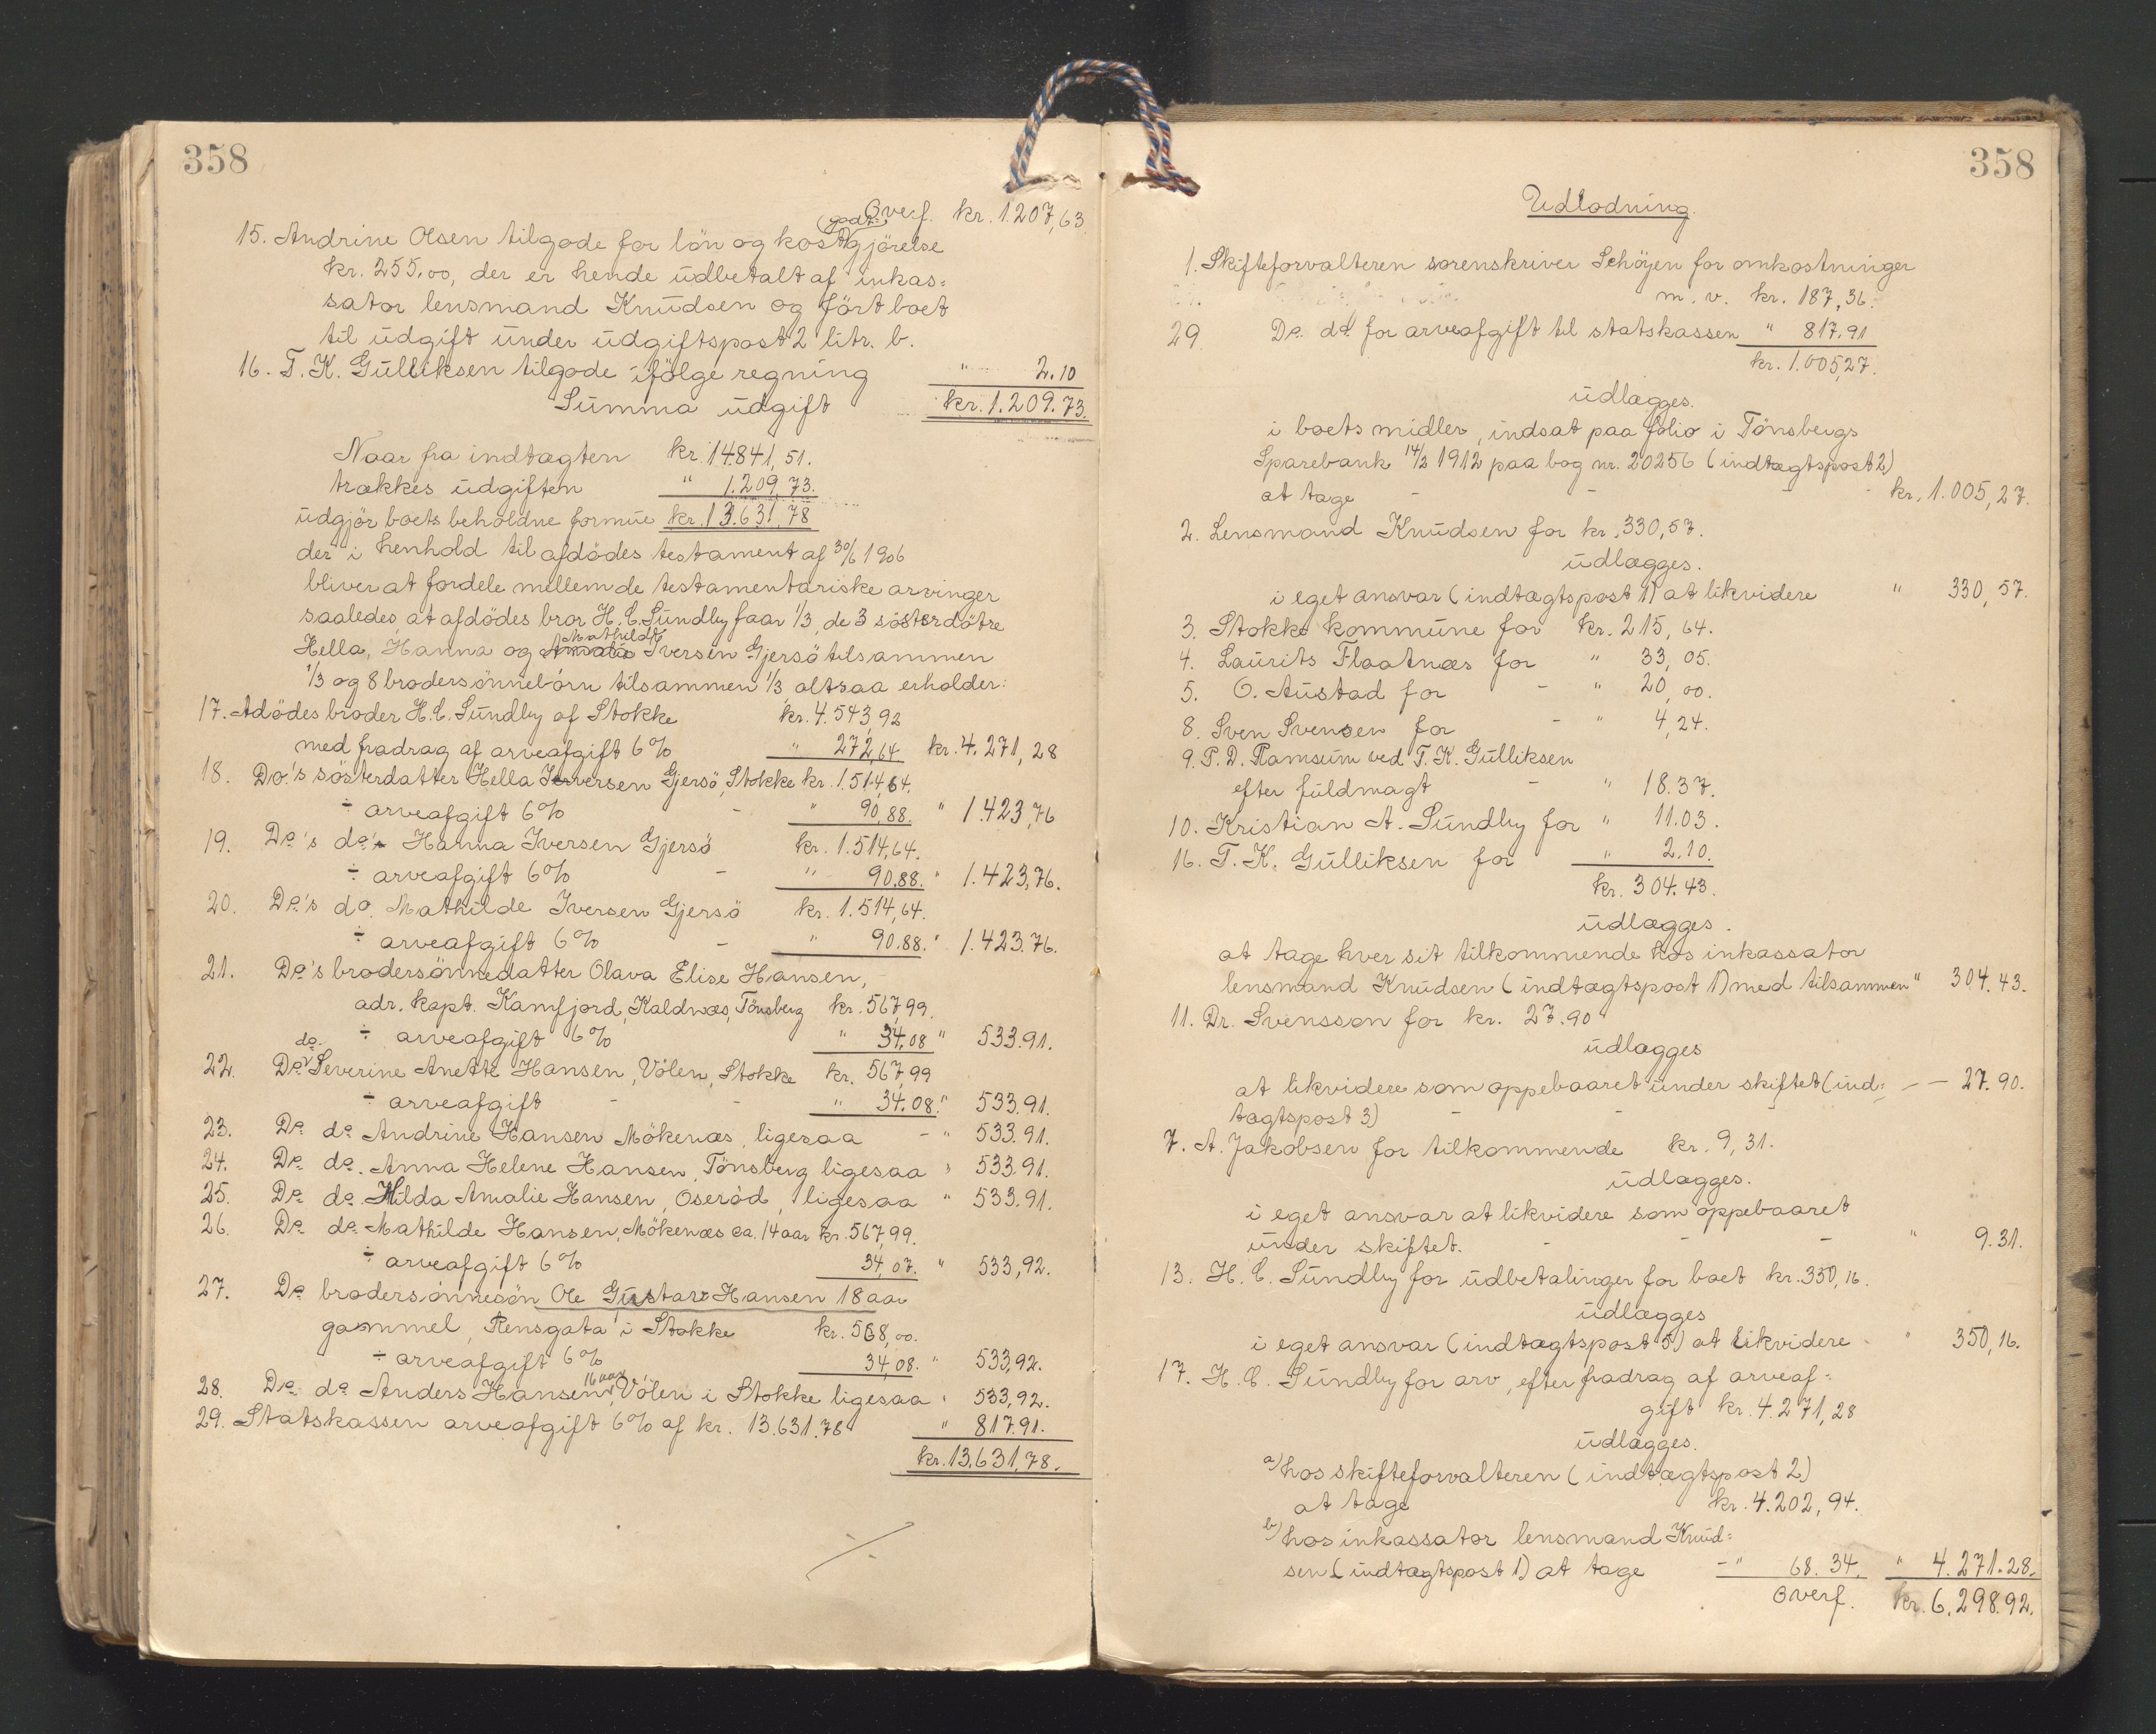 358
Overf. kr. 1.207,63
(godt-
15. Andrine Olsen tilgode for lön og kostgjörelse
kr. 255,00, der er hende udbetalt af inkas=
sator lensmand Knudsen og fört boet
til udgift under udgiftspost 2 litr. b.
16. T. K. Gulliksen tilgode ifölge regning " 2.10
Summa udgift kr. 1.209.73.
Naar fra indtægten kr. 14841,51.
trækkes udgiften " 1.209,73.
udgjör boets beholdne formue kr. 13.631,78
der i henhold til afdödes testament af 30/6 1906
bliver at fordele mellem de testamentariske arvinger
saaledes, at afdödes bror H. C. Sundby faar 1/3, de 3 sösterdötre
Mathilde
Hella, Hanna og Amalie Iversen Gjersö tilsammen
1/3 og 8 brodersönnebörn tilsammen 1/3 altsaa erholder:
17. Adödes broder H. C. Sundby af Stokke kr. 4.543,92
med fradrag af arveafgift 6% " 272,64 kr. 4.271,28
18. Do.'s sösterdatter Hella Iversen Gjersö, Stokke kr. 1.514,64.
÷ arveafgift 6% - " 90,88. " 1.423,76
19. Do's do. Hanna Iversen Gjersö kr. 1.514,64.
÷ arveafgift 6% - " 90.88. " 1.423,76.
20. Do's do. Mathilde Iversen Gjersö kr. 1.514,64.
÷ arveafgift 6% - " 90.88. " 1.423.76.
21. Do's brodersönnedatter Olava Elise Hansen,
adr. kapt. Kamfjord, Kaldnæs, Tönsberg kr. 567,99.
÷ arveafgift 6% " 34.08 " 533.91.
do.
22. Do Severine Anette Hansen, Völen, Stokke kr. 567,99
÷ arveafgift - - " 34.08. " 533.91.
23. Do do Andrine Hansen Mökenæs, ligesaa - " 533.91.
24. Do do. Anna Helene Hansen, Tönsberg ligesaa " 533.91.
25. Do do. Hilda Amalie Hansen, Oseröd, ligesaa " 533.91.
26. Do do. Mathilde Hansen, Mökenæs ca. 14 aar kr. 567,99.
÷ arveafgift 6% 34,07. " 533,92.
27. Do brodersönnesön Ole Gustav Hansen 18 aar
gammel, Rensgata i Stokke kr. 568,00.
÷ arveafgift 6% 34,08. " 533,92.
16 aar
28. Do do Anders Hansen, Völen i Stokke ligesaa " 533,92.
29. Statskassen arveafgift 6% af kr. 13.631.78 " 817.91.
kr. 13.631,78.
·/·
358
Udlodning.
1. Skifteforvalteren sorenskriver Schöyen for omkostninger
m. v. kr. 187,36.
29. Do. do. for arveafgift til statskassen " 817.91
kr. 1.005,27.
udlægges.
i boets midler, indsat paa folio i Tönsbergs
Sparebank 14/2 1912 paa bog nr. 20256 (indtægtspost 2)
at tage - - - - kr. 1.005,27.
2. Lensmand Knudsen for kr. 330,57.
udlægges.
i eget ansvar (indtægtspost 1) at likvidere " 330,57.
3. Stokke kommune for kr. 215,64.
4. Laurits Flaatnæs for " 33,05.
5. O. Austad for - " 20,00.
8. Sven Svensen for - " 4,24.
9. P. D. Ramsum ved T. K. Gulliksen
efter fuldmagt - " 18.37.
10. Kristian A. Sundby for " 11.03.
16. T. K. Gulliksen for " 2.10.
kr. 304.43.
udlægges.
at tage hver sit tilkommende hos inkassator
lensmand Knudsen (indtægtspost 1) med tilsammen " 304.43.
11. Dr. Svensson for kr. 27.90
udlægges
at likvidere som oppebaaret under skiftet (ind= - - 27.90.
tægtspost 3) - - -
7. A. Jakobsen for tilkommende kr. 9,31.
udlægges.
i eget ansvar at likvidere som oppebaaret
under skiftet. - - - " 9.31.
13. H. C. Sundby for udbetalinger for boet kr. 350,16.
udlægges
i eget ansvar (indtægtspost 5) at likvidere " 350,16.
17. H. C. Sundby for arv, efter fradrag af arveaf=
gift kr. 4.271,28
udlægges.
a) hos skifteforvalteren (indtægtspost 2)
at tage kr. 4.202,94.
b) hos inkassator lensmand Knud=
sen (indtægtspost 1) at tage - " 68.34. " 4.271.28.
Overf. kr. 6.298.92.